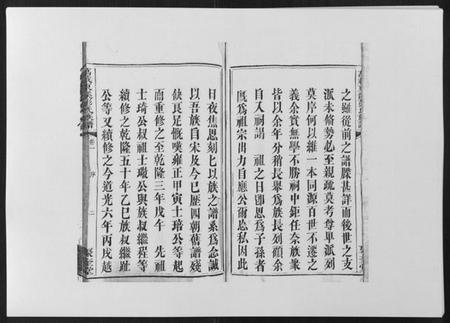 之雖從前之譜牒甚詳而後世之支
派未脩勢必至親疏莫考尊卑派列
莫序何以維一本同源百世不遷之
義余實無學不勝祠中鉅任奈族衆
皆以余年分稍長舉為族長列頭余
自入祠謁 祖之日即思為子孫者
既為祖宗出力自應公爾忘私因此
日夜焦思刻匕以族之譜系爲念誠
以吾族自宋及今已歷四朝舊譜殘
缺良足慨嘆雍正甲寅士琣公等起
而重修之至乾隆三年戊午 先祖
士琦公叔祖士璥公與族叔繼程等
續修之乾隆五十年乙巳族叔繼趾
公等又續修之今道光六年丙戌越
卷一 序 二